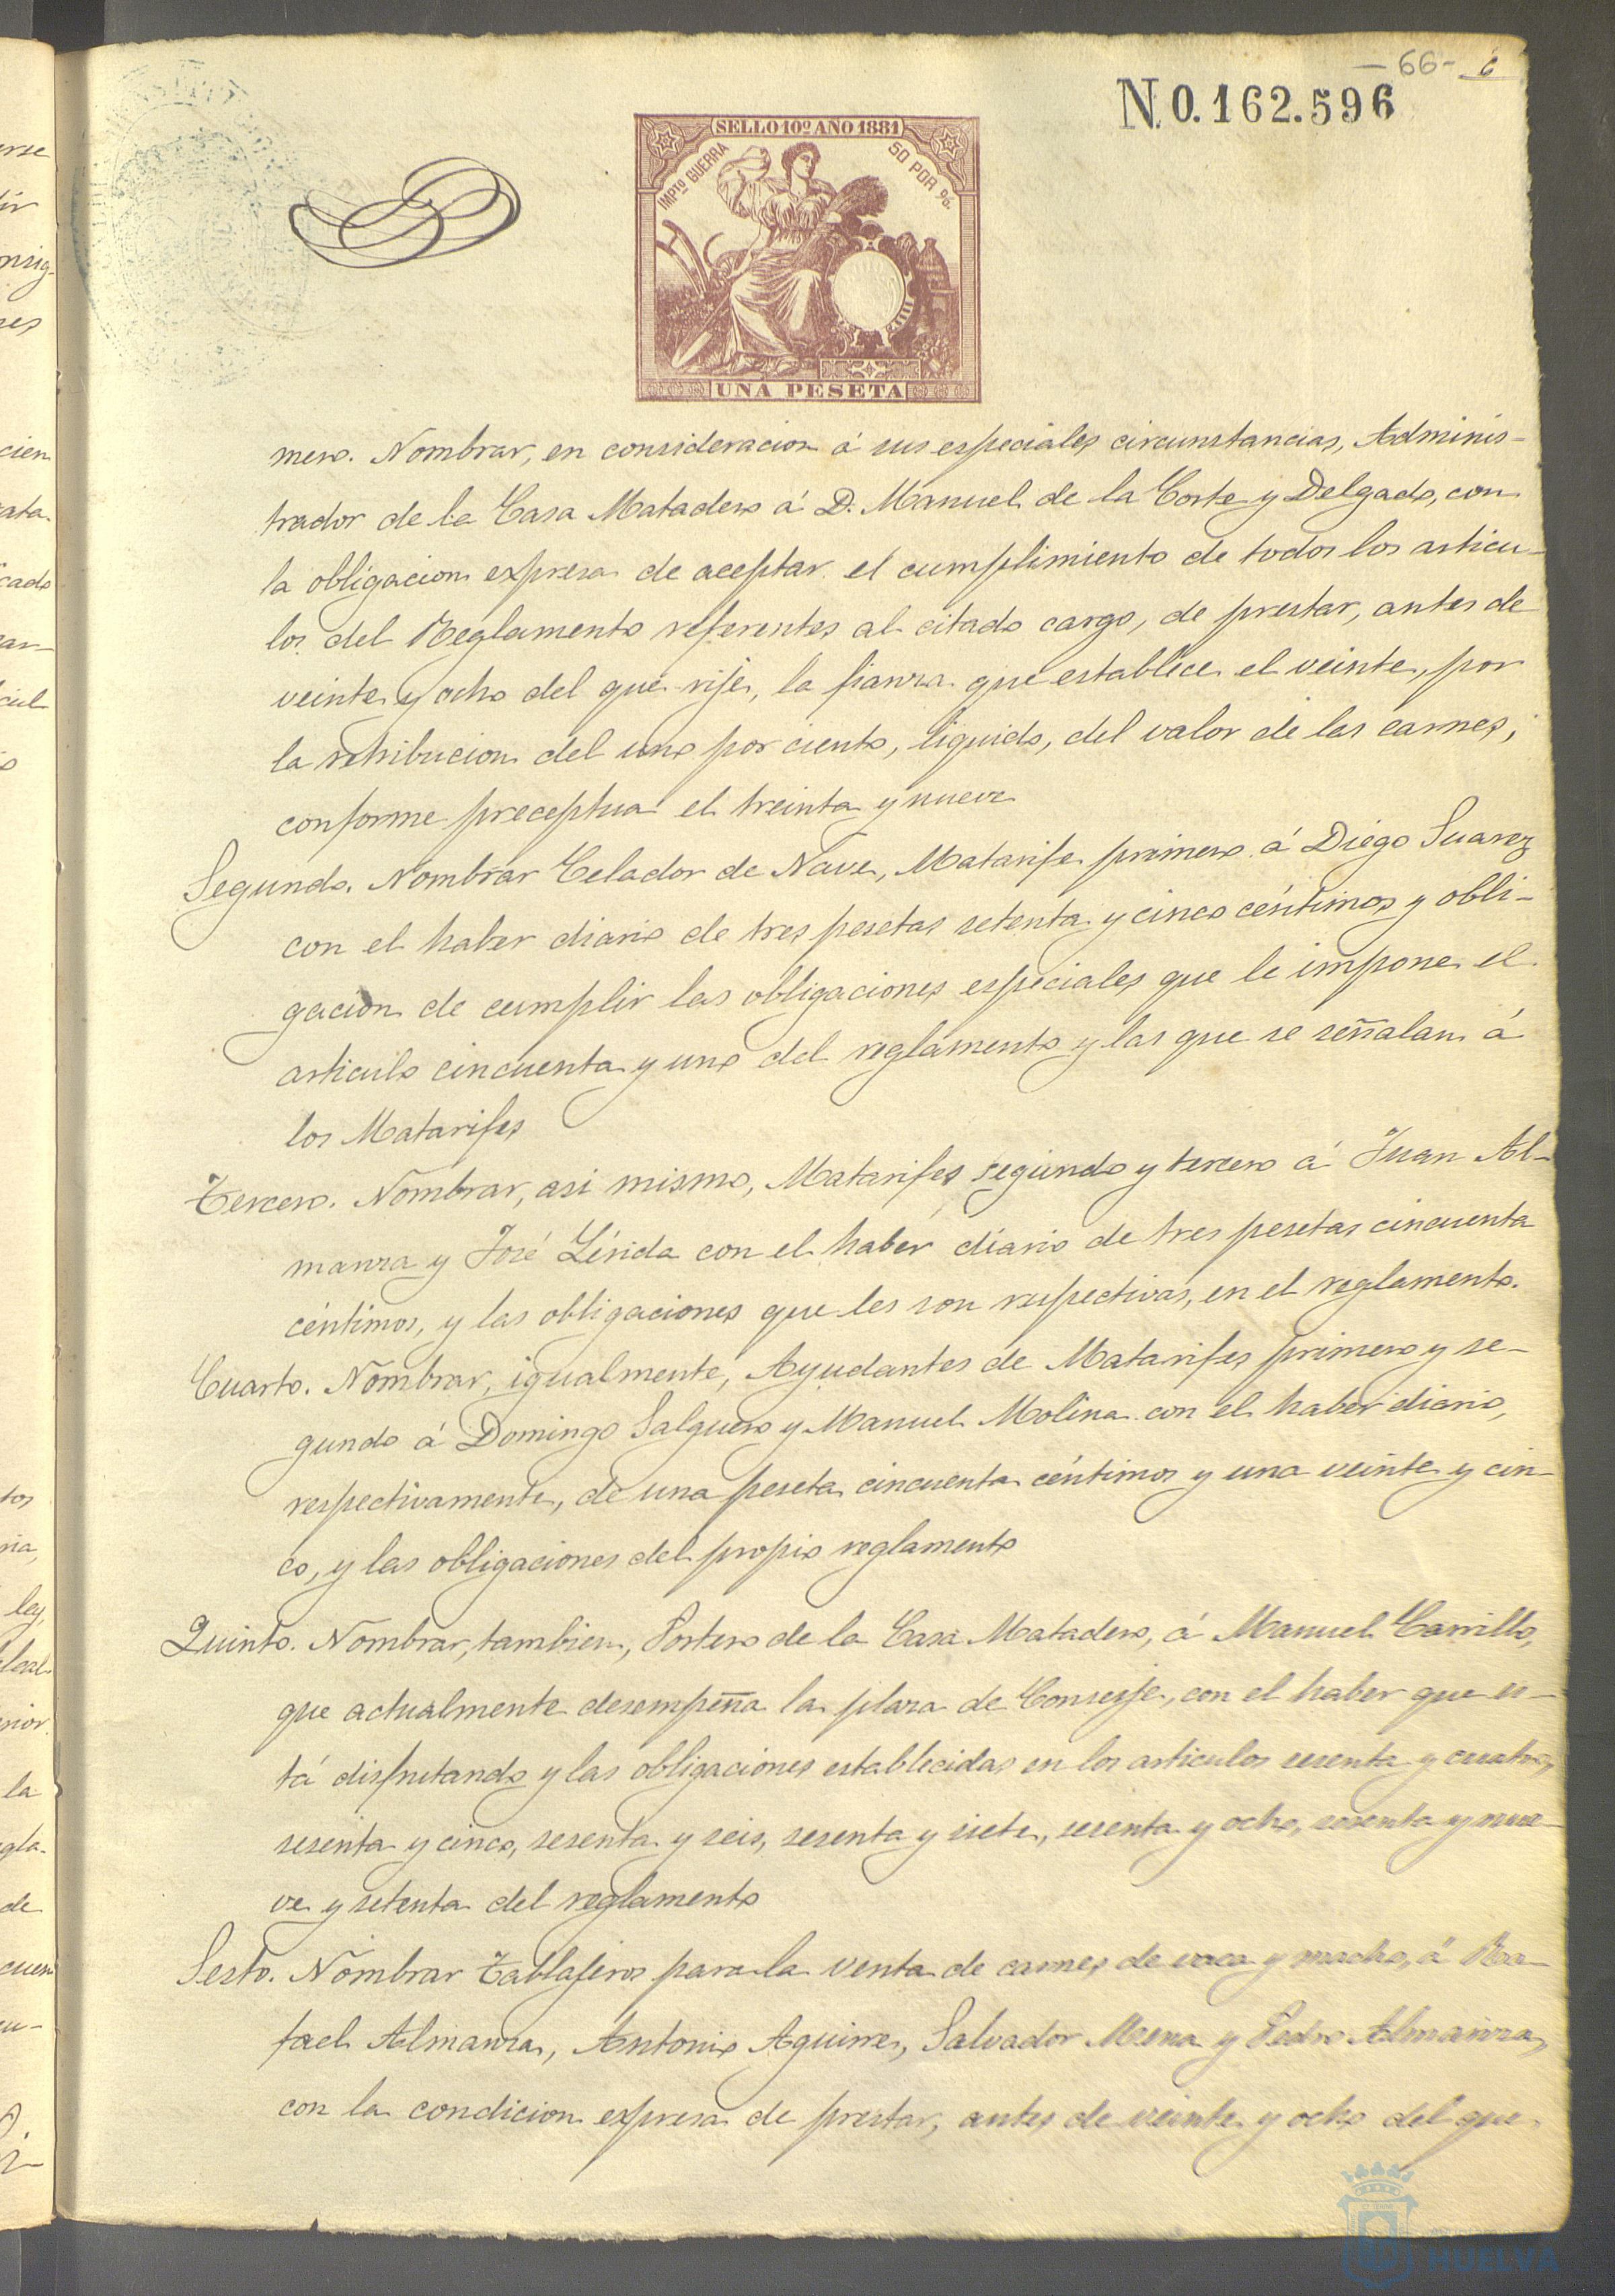 - 66 - 6
N.0.162.596
SELLO 10º AÑO 1881
IMPTO GUERRA
50 POR %.
UNA PESETA
mero. Nombrar, en consideracion á sus especiales circunstancias, Adminis-
trador de la Casa Matadero á D. Manuel de la Corte y Delgado, con
la obligacion expresa de aceptar el cumplimiento de todos los articu-
los del Reglamento referentes al citado cargo, de prestar, antes de
veinte y ocho del que rije, la fianza que establece el veinte, por
la retribucion del uno por ciento, liquido, del valor de las carnes,
conforme preceptua el treinta y nueve
Segundo. Nombrar Celador de Nave, Matarife primero á Diego Suarez
con el haber diario de tres pesetas setenta y cinco céntimos y obli-
gacion de cumplir las obligaciones especiales que le impone el
articulo cincuenta y uno del reglamento y las que se señalan á
los Matarifes
Tercero. Nombrar, asi mismo, Matarifes segundo y tercero á Juan Al-
manza y José Lérida con el haber diario de tres pesetas cincuenta
céntimos, y las obligaciones que les son respectivas, en el reglamento.
Cuarto. Nombrar, igualmente, Ayudantes de Matarifes primero y se-
gundo á Domingo Salguero y Manuel Molina con el haber diario,
respectivamente, de una peseta cincuenta céntimos y una veinte y cin-
co, y las obligaciones del propio reglamento
Quinto. Nombrar, tambien, Portero de la Casa Matadero, á Manuel Carrillo,
que actualmente desempeña la plaza de Conserje, con el haber que es-
tá disfrutando y las obligaciones establecidas en los articulos sesenta y cuatro,
sesenta y cinco, sesenta y seis, sesenta y siete, sesenta y ocho, sesenta y nue-
ve y setenta del reglamento
Sesto. Nombrar Tablajeros para la venta de carnes de vaca y macho, á Ra-
fael Almanza, Antonio Aguirre, Salvador Mena y Pedro Almanza,
con la condicion expresa de prestar, antes de veinte y ocho del que
HUELVA